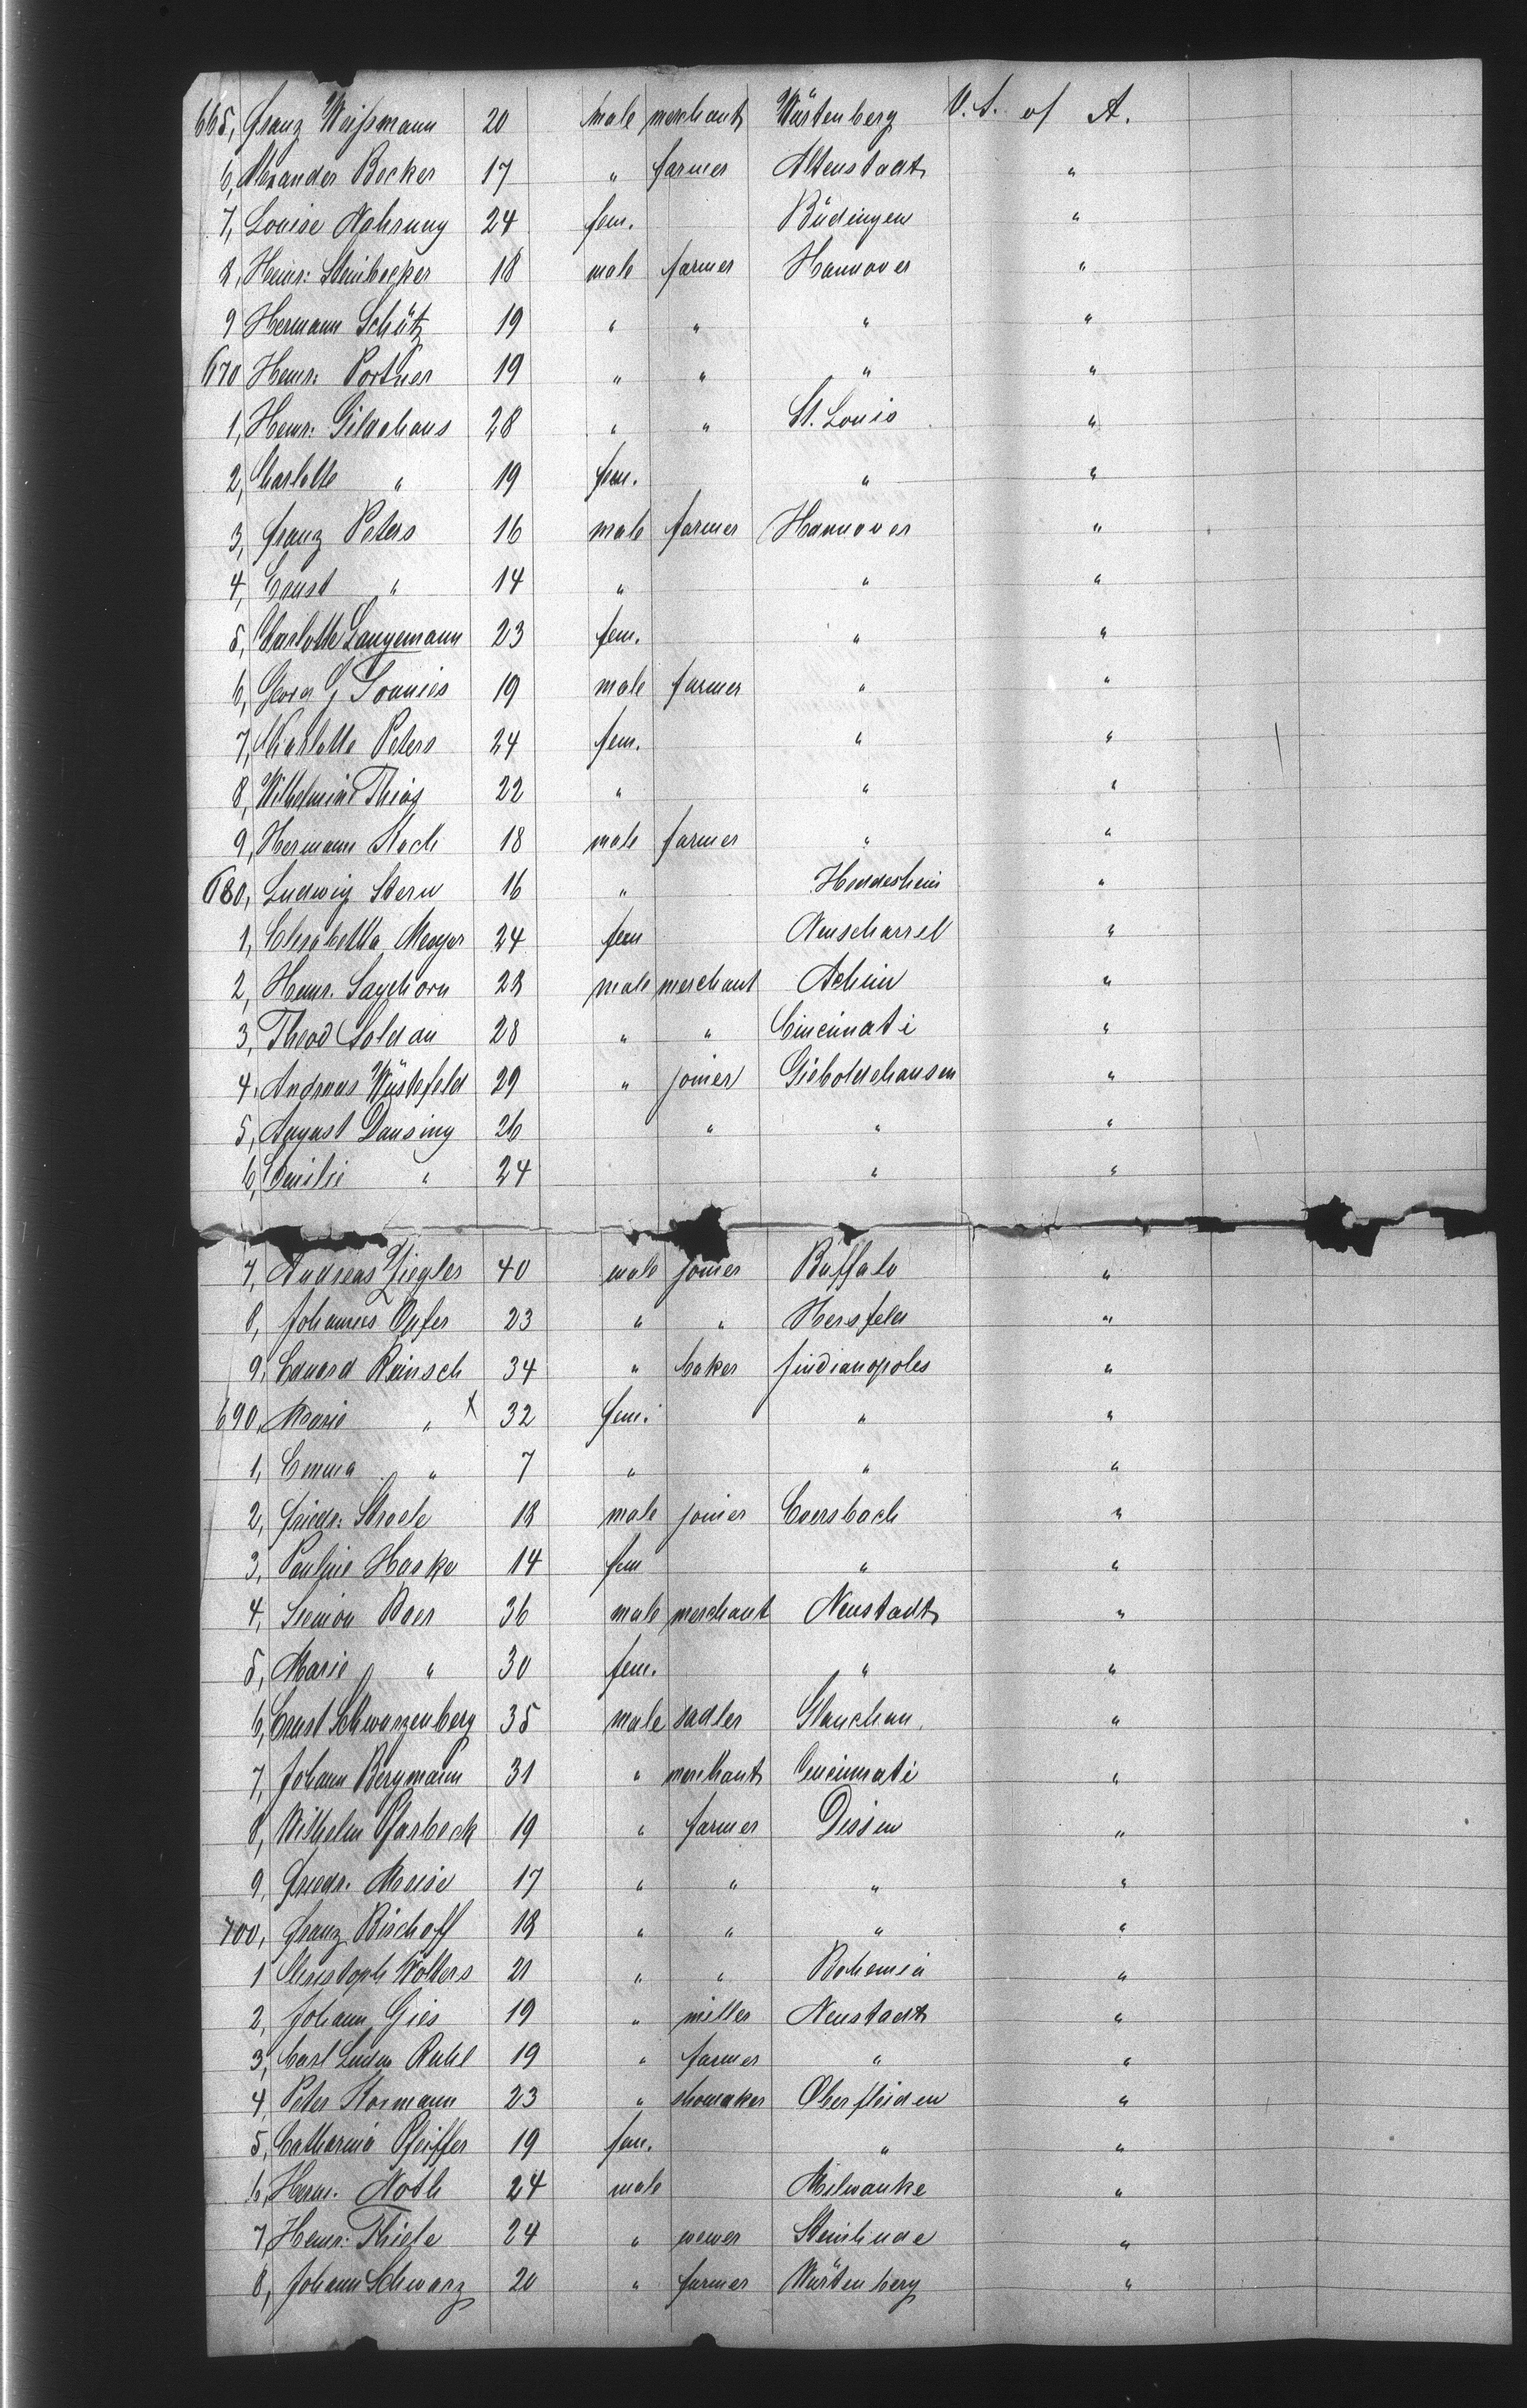 665, Franz Weißmann 20 male merchant Würtenberg U.S. of A.
6, Alexander Becker 17 " farmer Altenstadt "
7, Louise Nahrung 24 fem. Büdingen "
8, Heinr: Steinbecker 18 male farmer Hannover "
9 Hermann Schütz 19 " " " "
670 Heinr: Portner 19 " " " "
1, Heinr: Gildehaus 28 " " St. Louis "
2, Charlotte " 19 fem. " "
3, Franz Peters 16 male farmer Hannover "
4, Ernst " 14 " " "
5, Charlotte Langemann 23 fem. " "
6, Georg G 19 male farmer " "
7, Charlotte Peters 24 fem. " "
8, Wilhelmine 22 " " "
9, Hermann 18 male farmer " "
680, Ludwig Stern 16 " Heddesheim "
1, Elisabetha Meyer 24 fem Neuscharrel "
2, Heinr. Sayehorn 28 male merchant Achim "
3, Theod Soldan 28 " " Cincinnati "
4. Andreas Wüstefeld 29 " joiner Gieboldehausen "
5, August Dansing 26 " " "
6, Emilie " 24 " "
7, Andreas Ziegler 40 male joiner Buffalo "
8, Johannes Opfer 23 " " Hersfeld "
9, Eduard Reinsch 34 " baker Jindianopoles "
690, Marie " x 32 fem. " "
1, Emma " 7 " " "
2, Friedr: Stroele 18 male joiner Ebersbach "
3, Pauline Haske 14 fem " "
4, Simon Baer 36 male merchant Neustadt "
5, Marie " 30 fem. " "
6, Ernst Schwarzenberg 35 male sadler Glauchau "
7, Johann Bergmann 31 " merchant Cincinnati "
8, Wilhelm 19 " farmer Dissen "
9, Friedr. Meise 17 " " " "
700, Franz Bischoff 18 " " " "
1 Christoph Wolters 21 " " Bohemia "
2, Johann Gies 19 " miller Neustadt "
3, Carl Ludw Ruhl 19 " farmer " "
4, Peter Kormann 23 " shomaker Oberfleiden "
5, Catharina Pfeiffer 19 fem. " "
6, Herm. Noth 24 male Milwauke "
7, Heinr: Thiele 24 " wewer Steinhude "
8, Johann Schwarz 20 " farmer Würtenberg "